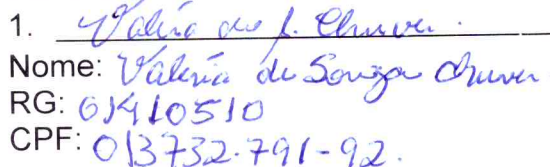 1. Valéria de S. Chuver.
Nome: Valéria de Souza Chuver
RG: 01410510
CPF: 013732.791-92.